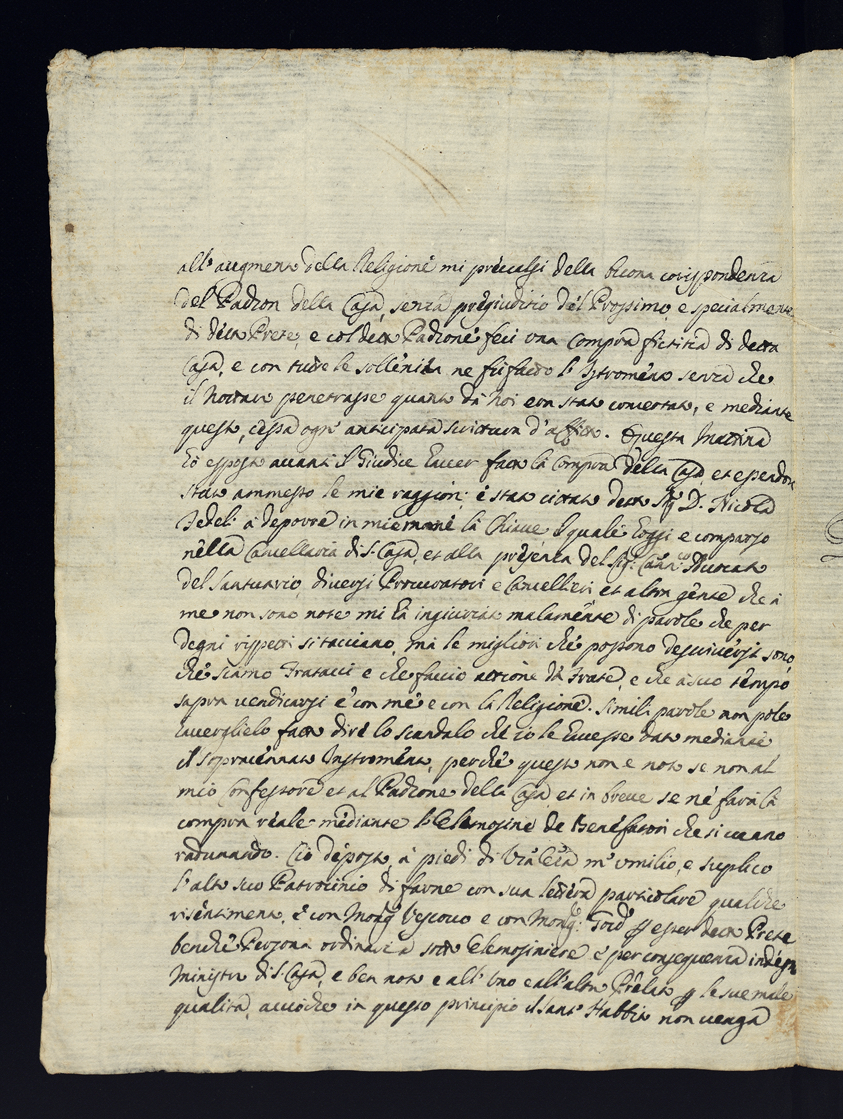 all'augmento della Religione mi prevalsi della buona corrispondenza
del Padron della Casa, senza pregiuditio del Prossimo, e specialmente
di detto Prete, e col detto Padrone feci una Compra fictitia di detta
Casa, e con tutte le sollenità ne fu fatto l'Istromento senza che
il Nottaro penetrasse quanto da noi era stato concertato, e mediante
questo, cessa ogni anticipata scrittura d'affitto. Questa Mattina
hò esposto avanti il Giudice haver fatto la Compra della Casa, et essendo
stato ammesso le mie raggioni è stato citato detto Sig.r D. Nicola
Fedeli à deporre in mie mani la Chiave, il quale hoggi e comparso
nella Cancellaria di S. Casa, et alla presenza del Sig.r Avvocato
del Santuario, diversi Procuratori e Cancellieri et altra gente che à
me non sono note mi hà ingiuriato malamente di parole che per
degni rispetti si tacciano, ma le migliori che possono descriversi sono
che siamo Fratacci e che faccio attione da Frate, e che à suo tempo
saprà vendicarsi e con me e con la Religione. Simili parole non pole
haverglielo fatto dire lo scandalo che io le havesse dato mediante
il sopracennato Instromento, perche questo non e noto se non al
mio Confessore et al Padrone della Casa, et in breve se ne farà la
compra reale mediante l'Elemosine de Benefatori che si vanno
radunando. Ciò deposto, à piedi di m'umilio, e suplico
l'alto suo Patrocinio di farne con sua lettera particolare qualche
risentimento, e con Mons.r Vescovo e con Mons.r esser detto Prete
benche Persona ordinaria sotto Elemosiniere e per conseguenza
Ministro di S. Casa, e ben noto e all'Uno e all'altro Prelato le sue male
qualità, accioche in questo principio il Santo Habbito non venga